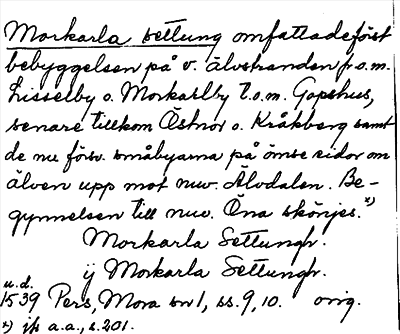 Morkarla settung omfattade först
bebyggelsen på v. älvstranden fr.o.m.
Lisselby o. Morkarlby t.o.m. Gopshus,
senare tillkom Östnor o. Kråkberg samt
de nu försv. småbyarna på ömse sidor om
älven upp mot nuv. Älvdalen. Be-
gynnelsen till nuv. Öna skönjes.*)
Morkarla Settungh.
ij Morkarla Settungh.
u.d.
1539 Pers, Mora sn 1, ss. 9, 10. orig.
*) jfr a.a., s. 201.